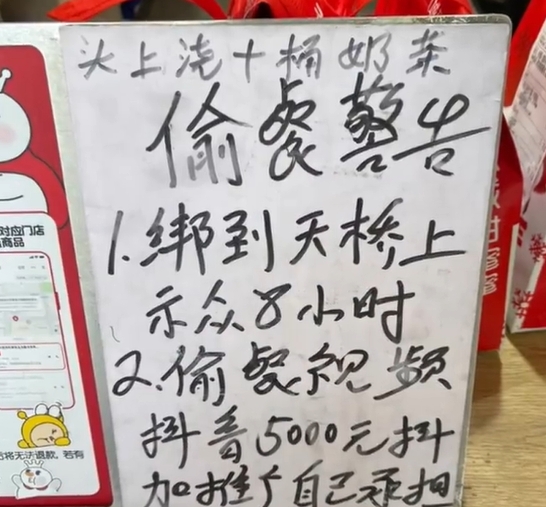 头上浇十桶奶茶
偷餐警告
1.绑到天桥上
示众8小时
2.偷餐视频
抖音5000元抖
加推广自己承担
对应门店
商品
将无法退款。若有